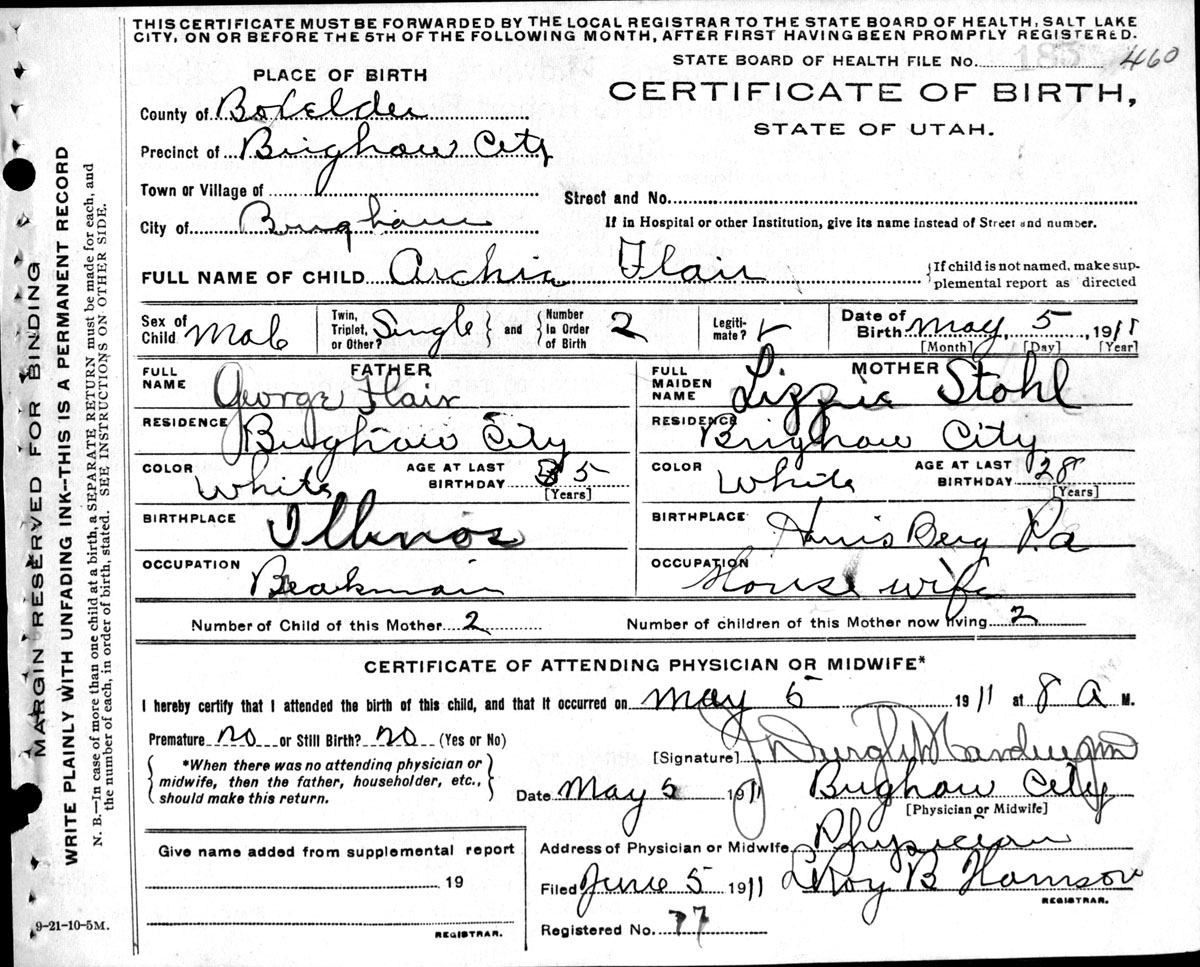 THIS CERTIFICATE MUST BE FORWARDED BY THE LOCAL REGISTRAR TO THE STATE BOARD OF HEALTH, SALT LAKE
CITY, ON OR BEFORE THE 5TH OF THE FOLLOWING MONTH, AFTER FIRST HAVING BEEN PROMPTLY REGISTERED.
STATE BOARD OF HEALTH FILE No. 460
PLACE OF BIRTH
CERTIFICATE OF BIRTH,
STATE OF UTAH.
County of Boxelder
Precinct of Brigham City
Town or Village of
Street and No.
City of Brigham
If in Hospital or other Institution, give its name instead of Street and number.
FULL NAME OF CHILD Archie Flair
{If child is not named, make supplemental report as directed
Sex of Child Male
Twin, Triplet, or Other? Single } and { Number in Order of Birth 2
Legitimate?
Date of Birth May 5, 1911
[Month] [Day] [Year]
FATHER
FULL NAME George Flair
MOTHER
FULL MAIDEN NAME Lizzie Stohl
RESIDENCE Brigham City
RESIDENCE Brigham City
COLOR White
AGE AT LAST BIRTHDAY 35 [Years]
COLOR White
AGE AT LAST BIRTHDAY 28 [Years]
BIRTHPLACE Illinos
BIRTHPLACE Harris Berg Pa
OCCUPATION
OCCUPATION House wife
Number of Child of this Mother 2
Number of children of this Mother now living 2
CERTIFICATE OF ATTENDING PHYSICIAN OR MIDWIFE*
I hereby certify that I attended the birth of this child, and that it occurred on May 5 1911 at 8 A M.
Premature no or Still Birth? no (Yes or No)
*When there was no attending physician or
midwife, then the father, householder, etc.,
should make this return.
[Signature]
Date May 5 1911 Brigham City
[Physician or Midwife]
Address of Physician or Midwife Physician
Give name added from supplemental report
19
REGISTRAR.
Filed June 5 1911 LeRoy B
REGISTRAR.
Registered No. 77
9-21-10-5M.
MARGIN RESERVED FOR BINDING
WRITE PLAINLY WITH UNFADING INK--THIS IS A PERMANENT RECORD
N. B.—In case of more than one child at a birth, a SEPARATE RETURN must be made for each, and
the number of each, in order of birth, stated. SEE INSTRUCTIONS ON OTHER SIDE.